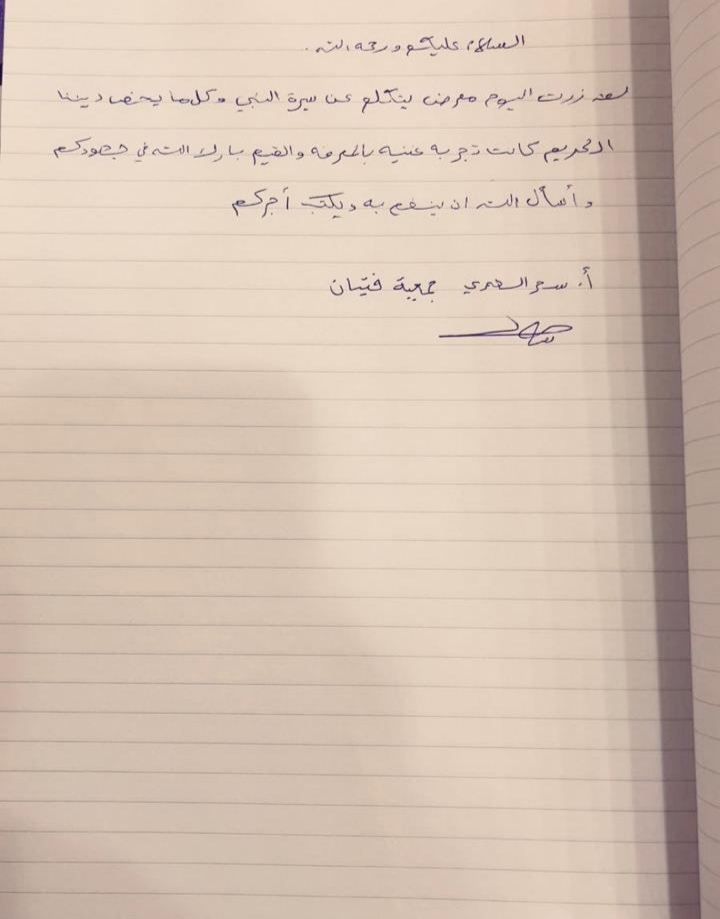 السلام عليكم ورحمة الله.
لقد زرت اليوم معرض يتكلم عن سيرة النبي وكل ما يخص ديننا
الكريم كانت تجربه غنيه بالمعرفه والقيم بارك الله في جهودكم
و أسأل الله ان ينفع به ويكتب أجركم
أ. سحر جمعية فتيان